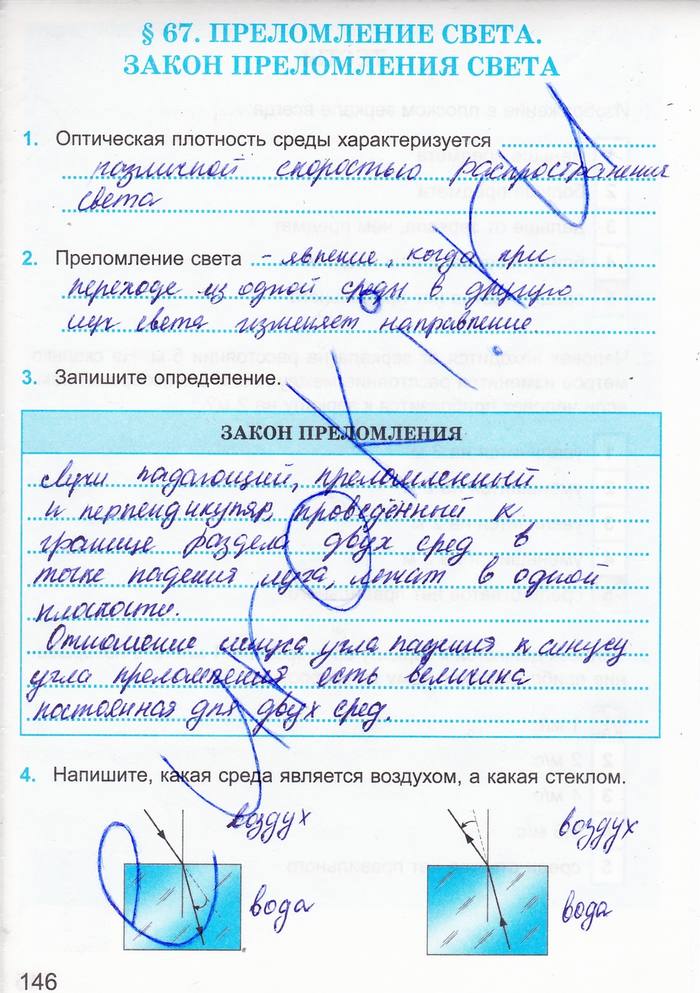 § 67. ПРЕЛОМЛЕНИЕ СВЕТА.
ЗАКОН ПРЕЛОМЛЕНИЯ СВЕТА
1. Оптическая плотность среды характеризуется
различной скоростью распространения
света
2. Преломление света - явление, когда при
переходе из одной среды в другую
луч света изменяет направление
3. Запишите определение.
ЗАКОН ПРЕЛОМЛЕНИЯ
Лучи падающий, преломленный
и перпендикуляр, проведённый к
границе раздела двух сред в
точке падения луча, лежат в одной
плоскости.
Отношение синуса угла падения к синусу
угла преломления есть величина
постоянная для двух сред.
4. Напишите, какая среда является воздухом, а какая стеклом.
воздух воздух
вода вода
146